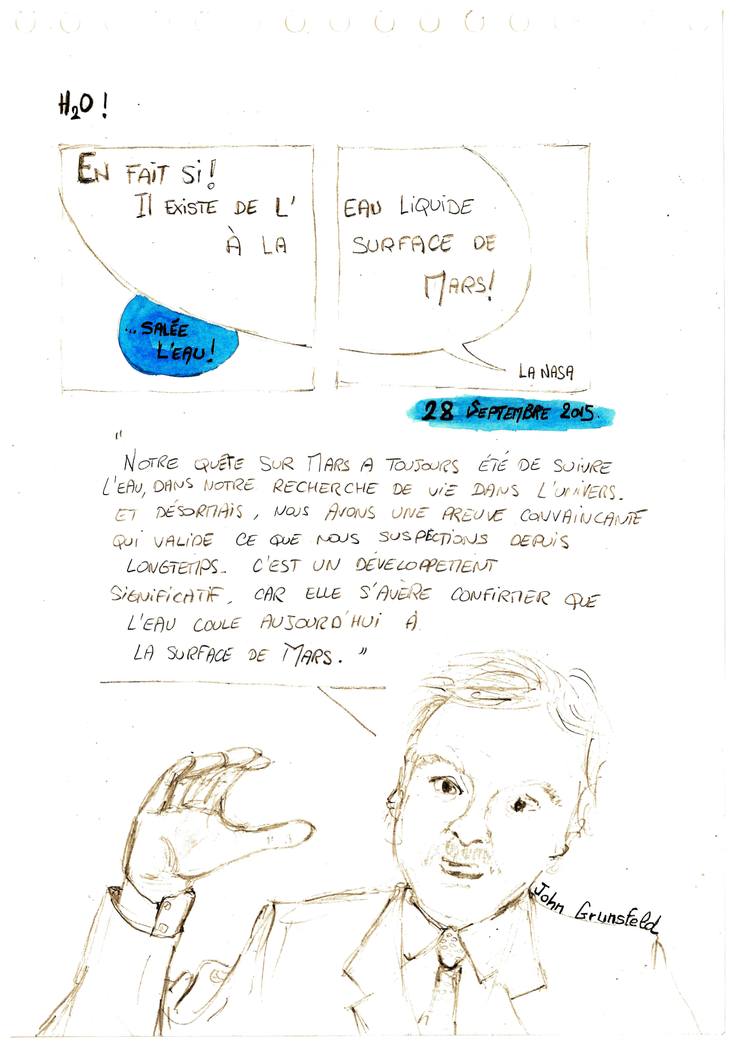 H₂O !
EN FAIT SI !
IL EXISTE DE L' EAU LIQUIDE
À LA SURFACE DE
MARS !
... SALÉE
L'EAU !
LA NASA
28 SEPTEMBRE 2015.
"
NOTRE QUÊTE SUR MARS A TOUJOURS ÉTÉ DE SUIVRE
L'EAU, DANS NOTRE RECHERCHE DE VIE DANS L'UNIVERS.
ET DÉSORMAIS, NOUS AVONS UNE PREUVE CONVAINCANTE
QUI VALIDE CE QUE NOUS SUSPECTIONS DEPUIS
LONGTEMPS. C'EST UN DÉVELOPPEMENT
SIGNIFICATIF, CAR ELLE S'AVÈRE CONFIRMER QUE
L'EAU COULE AUJOURD'HUI À
LA SURFACE DE MARS. "
John Grunsfeld